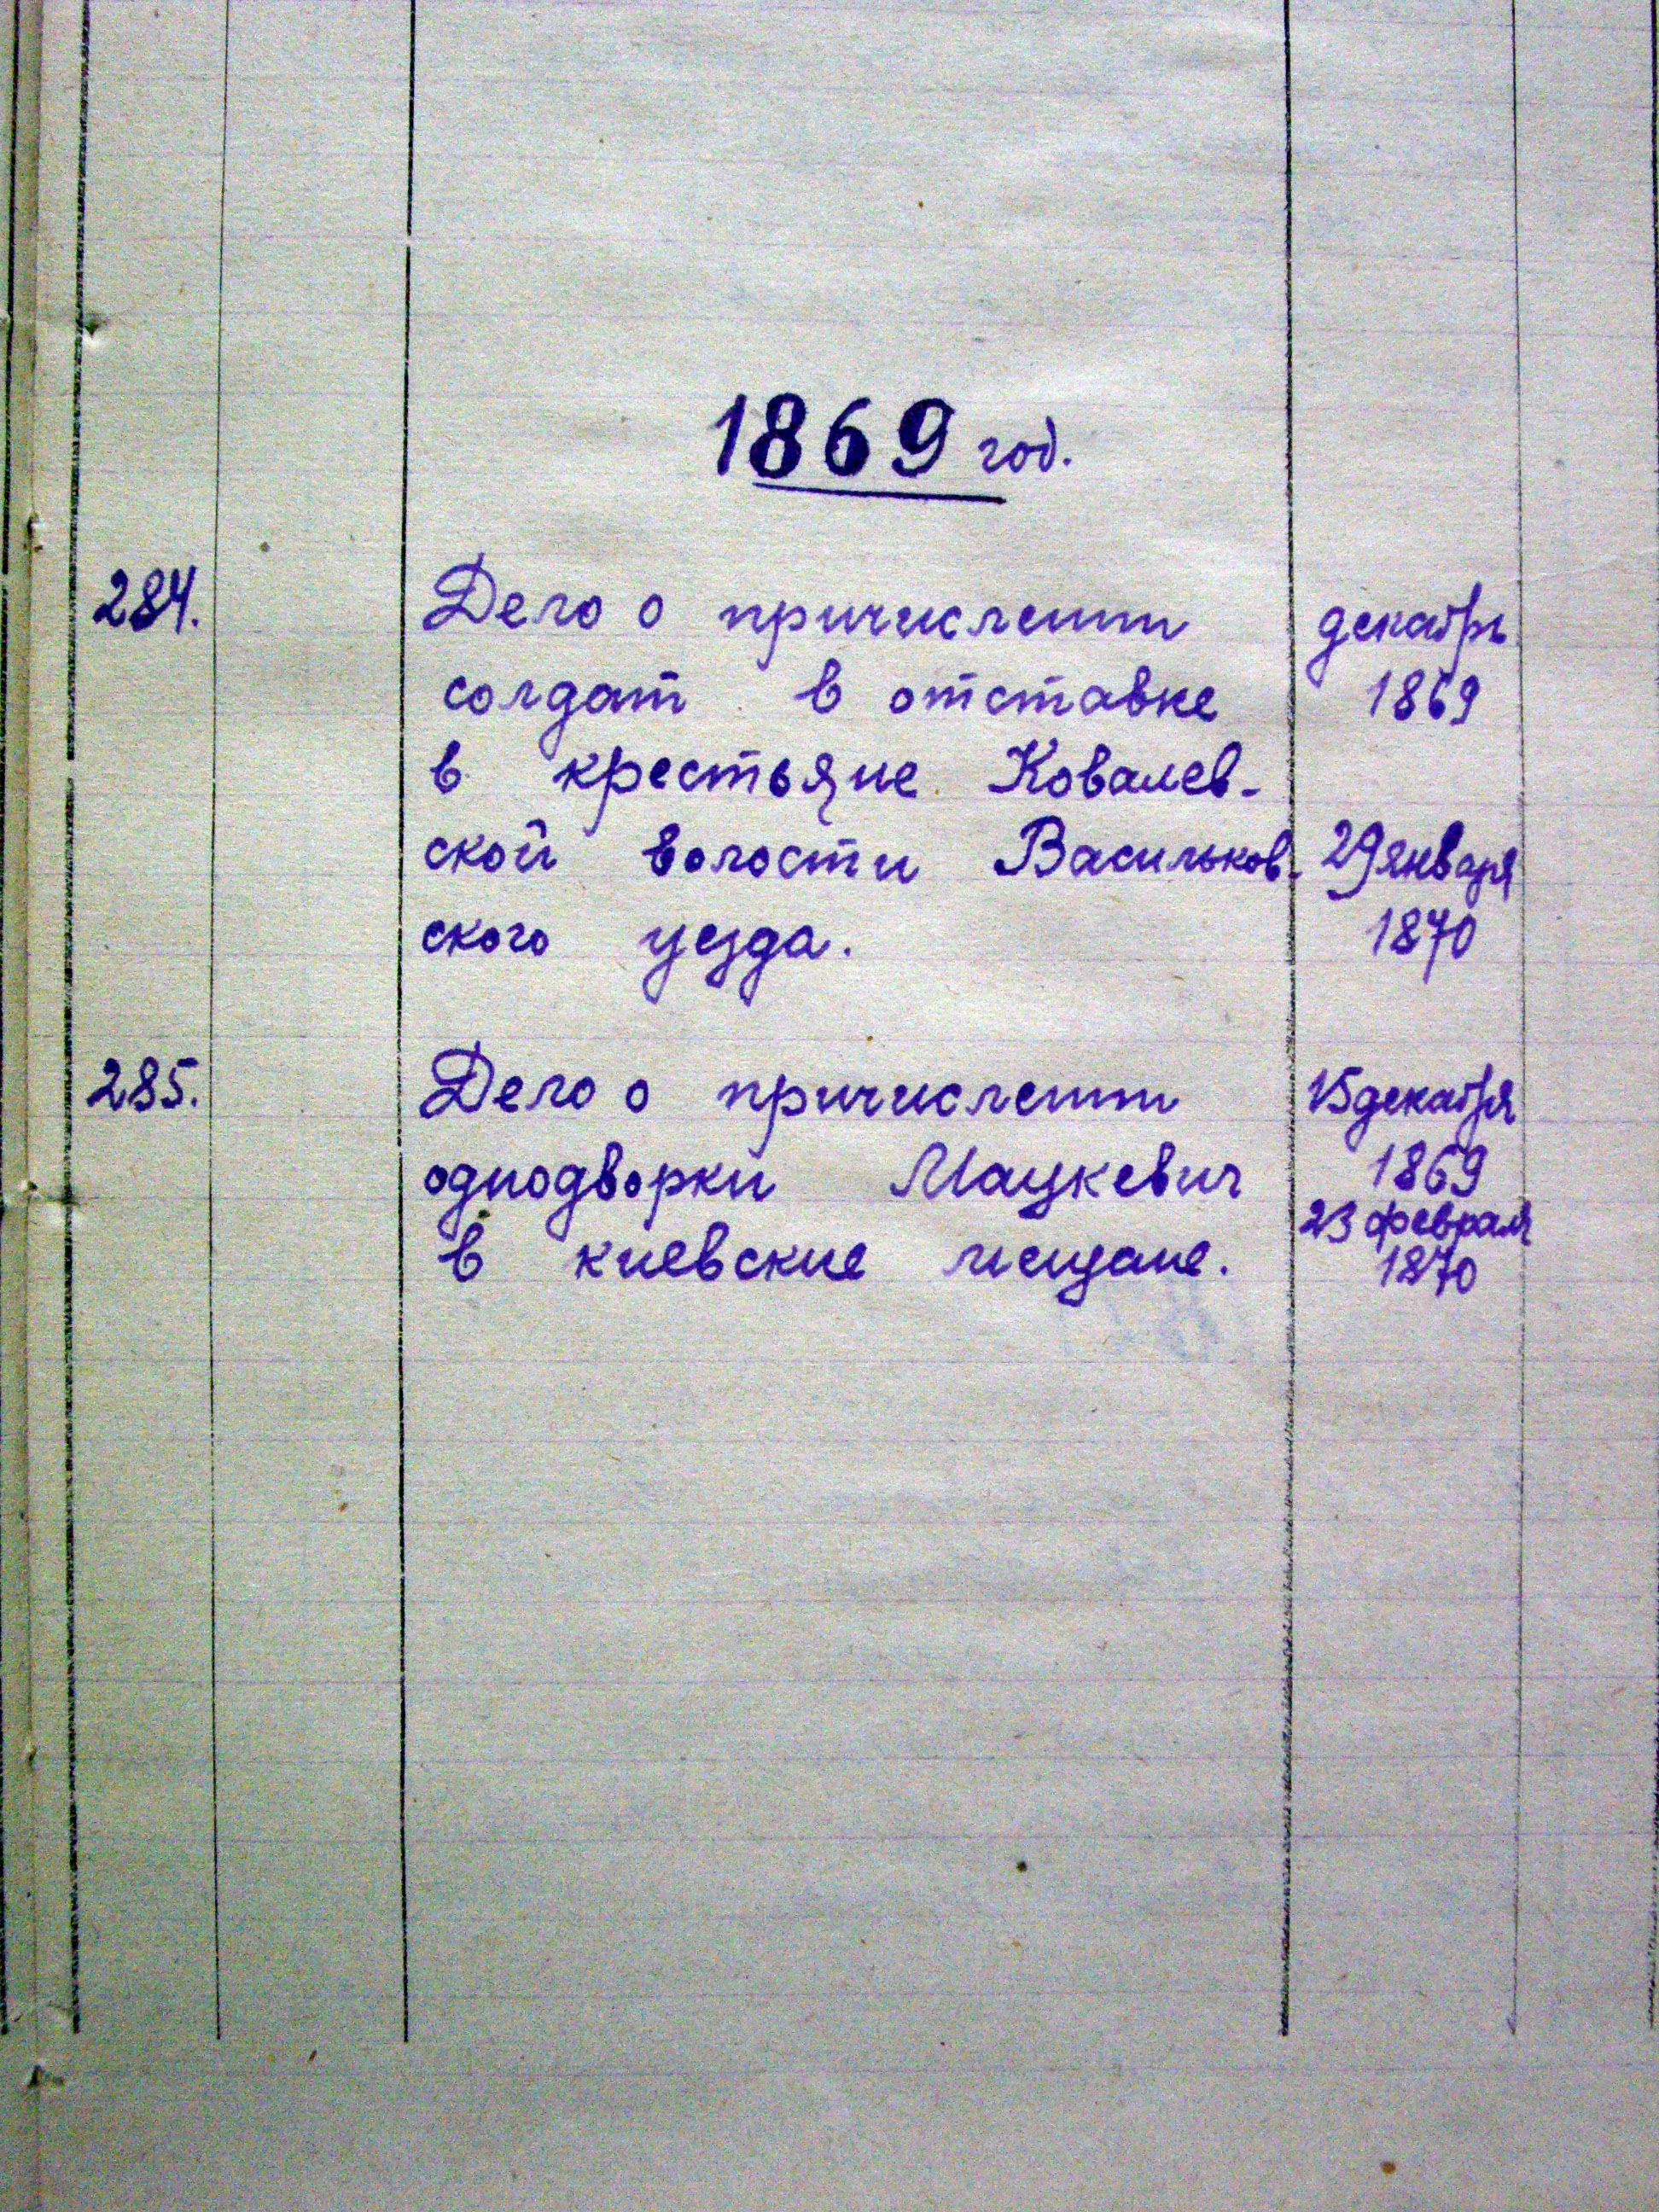 1869 год.
284.
Дело о причислении
солдат в отставке
в крестьяне Ковалев-
ской волости Васильков-
ского уезда.
декабрь
1869
29 января
1870
285.
Дело о причислении
однодворки Мацкевич
в киевские мещане.
15 декабря
1869
23 февраля
1870